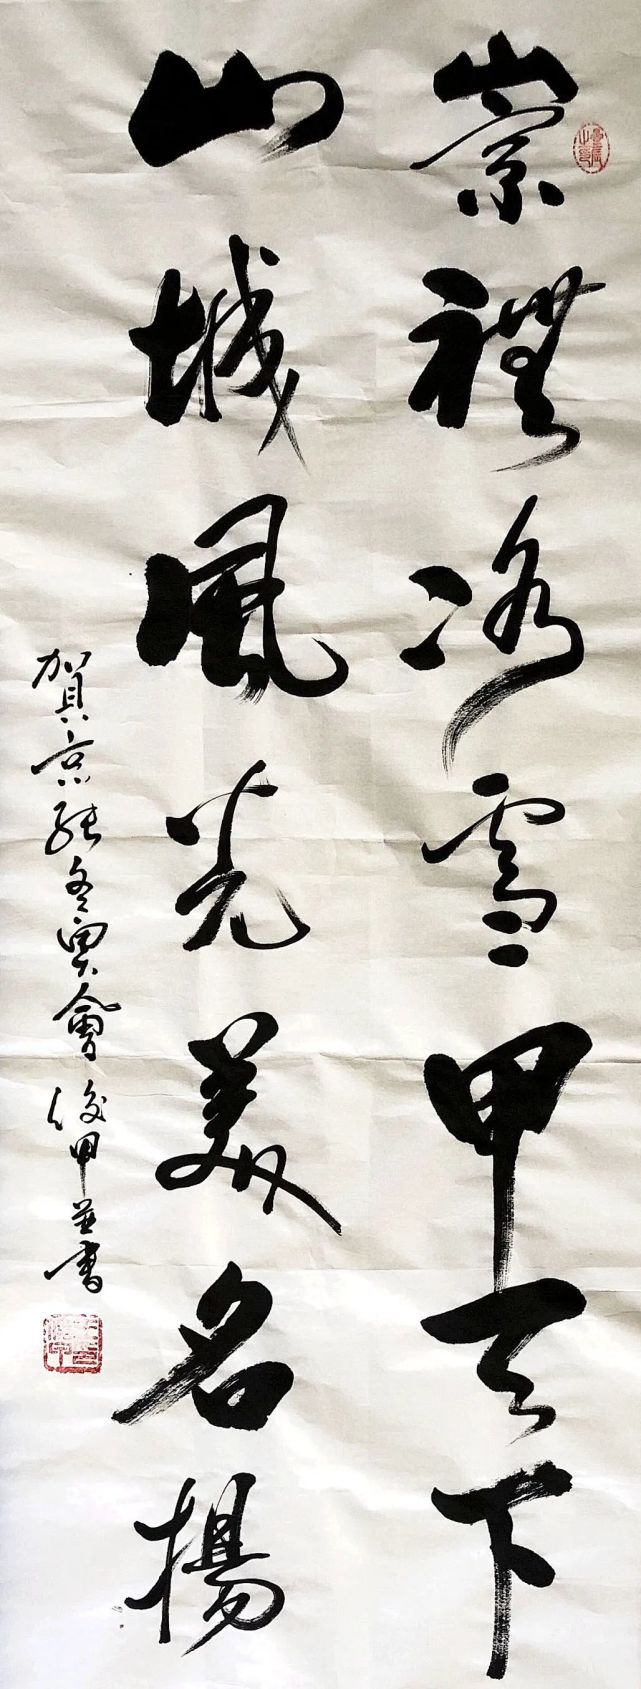 崇禮冰雪甲天下
山城風光美名揚
賀京張冬奧會 俊甲並書